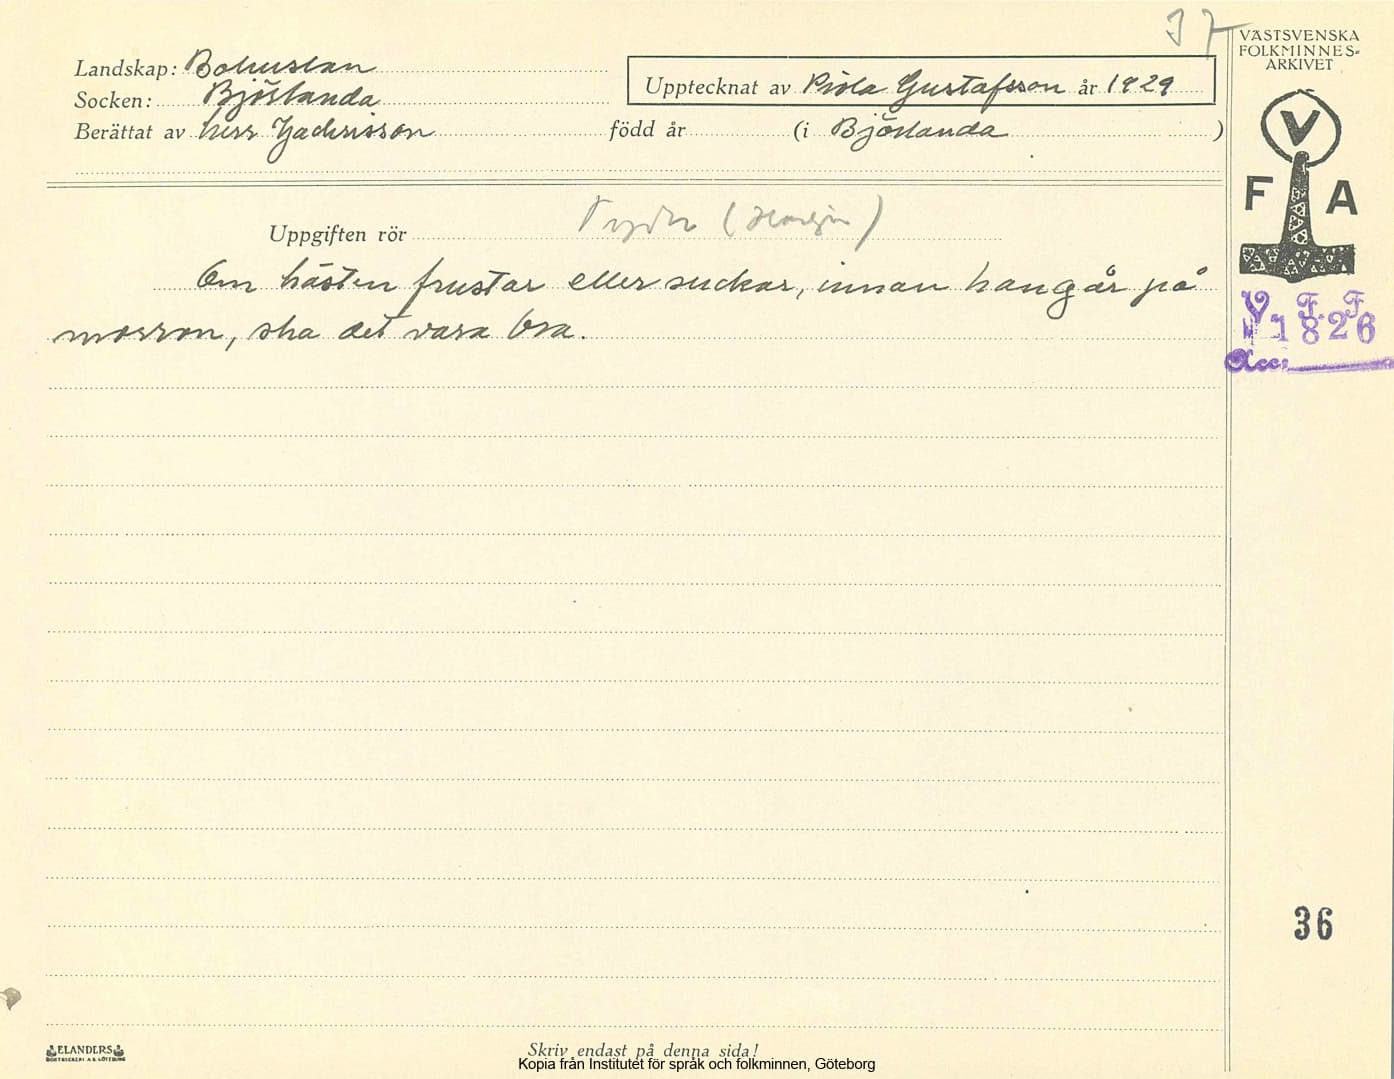 37
VÄSTSVENSKA
FOLKMINNES-
ARKIVET
Landskap: Bohuslän
Socken: Björlanda
Upptecknat av Viola Gustafsson år 1929
Berättat av herr Zachrisson född år (i Björlanda )
V
F A
Uppgiften rör
Om hästen frustar eller suckar, innan han går på
morron, ska det vara bra.
V. F. F
1826
Acc.
36
ELANDERS
BOKTRYCKERI A.B. GÖTEBORG
Skriv endast på denna sida!
Kopia från Institutet för språk och folkminnen, Göteborg